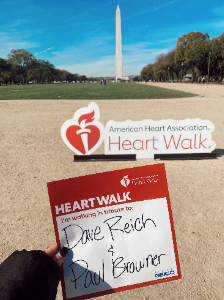 American Heart Association.
Heart Walk.
American Heart Association.
Heart Walk.
HEART WALK
I'm walking in tribute to:
Dave Reich
&
Paul Browner